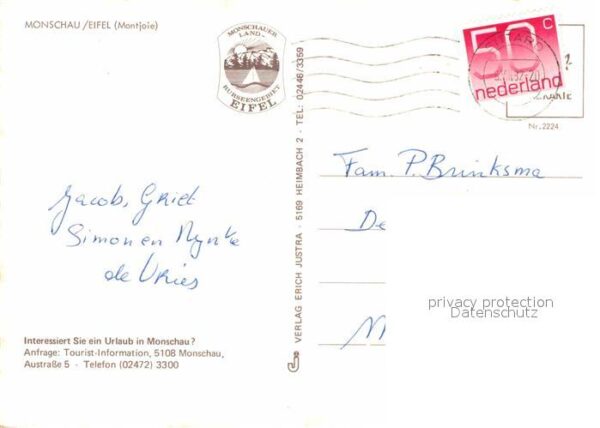 MONSCHAU /EIFEL (Montjoie)
MONSCHAUER
LAND-
RURSEENGEBIET
EIFEL
50c
nederland
KARTE
Nr. 2224
Jacob, Griet
Simon en Nynke
de Vries
Fam. P. Brinksma
De
privacy protection
Datenschutz
VERLAG ERICH JUSTRA · 5169 HEIMBACH 2 · TEL: 02446/3359
Interessiert Sie ein Urlaub in Monschau?
Anfrage: Tourist-Information, 5108 Monschau,
Austraße 5 · Telefon (02472) 3300